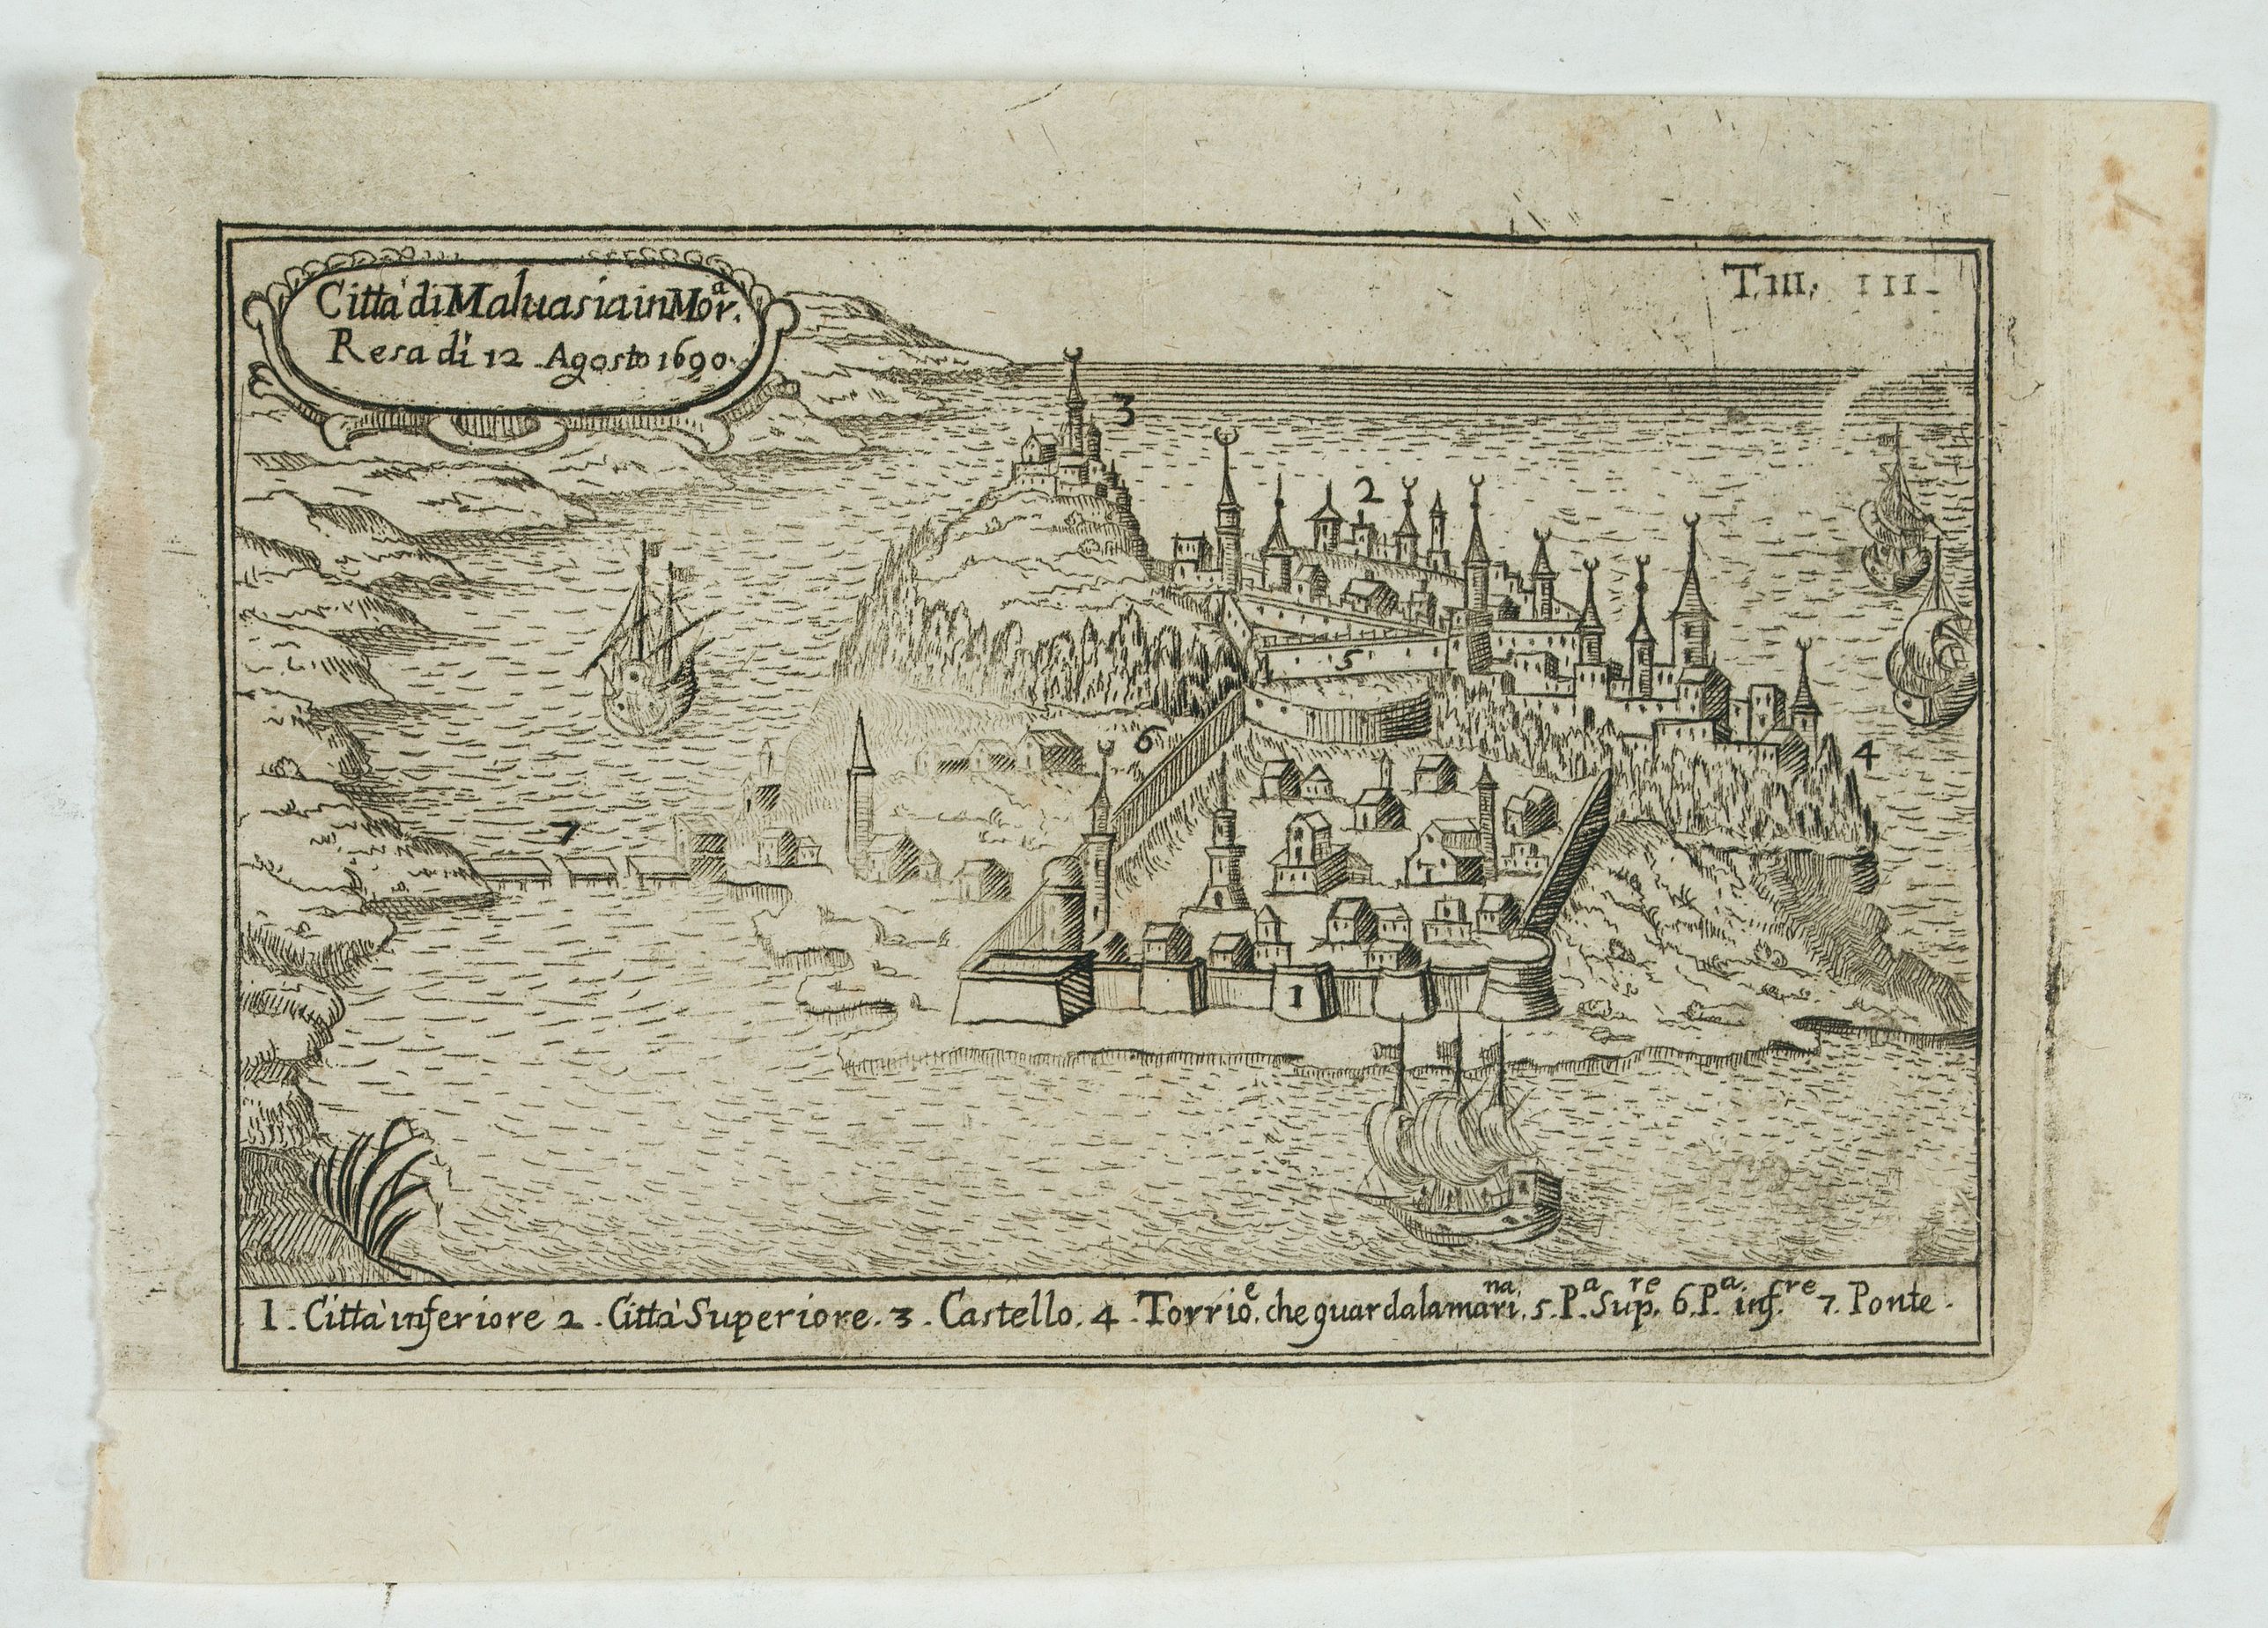 Città di Maluasia in Mor.ª
Resa di 12 Agosto 1690.
T.III. III.
3
2
5
6
4
7
1
1. Città inferiore 2. Città Superiore. 3. Castello. 4. Torrio.ᵉ che guarda la mari.ⁿᵃ 5. P.ª Sup.ʳᵉ 6. P.ª inf.ʳᵉ 7. Ponte.